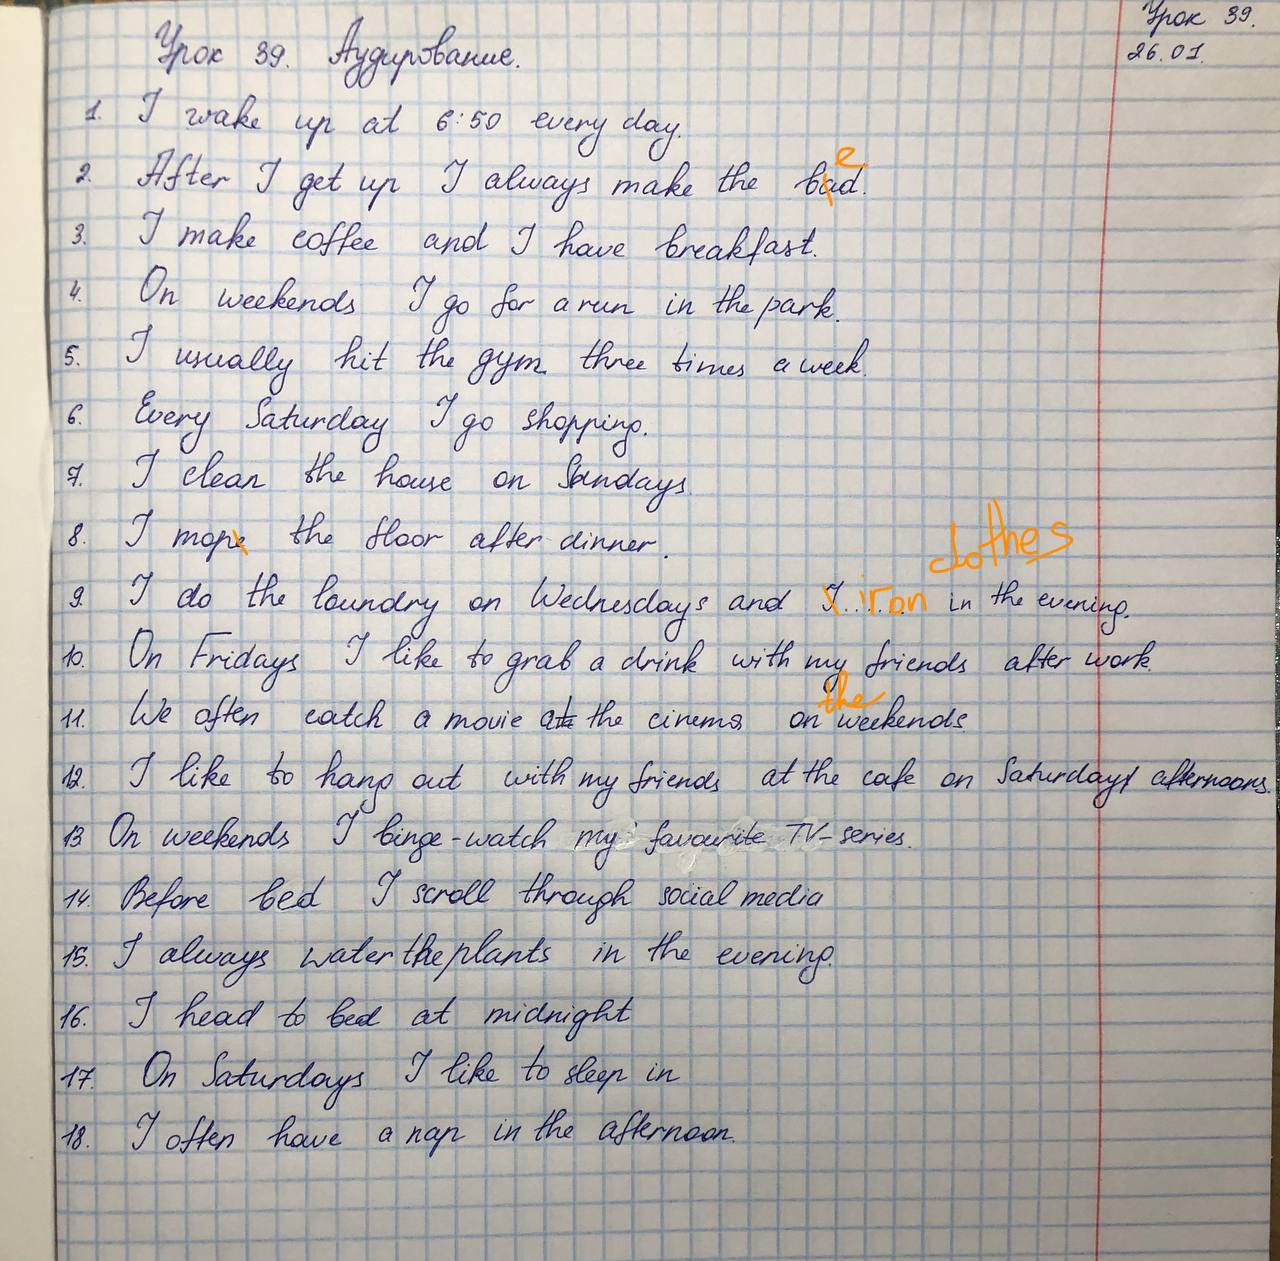 Урок 39.
26.01.
Урок 39. Аудирование.
1. I wake up at 6:50 every day.
e
2. After I get up I always make the bad.
3. I make coffee and I have breakfast.
4. On weekends I go for a run in the park.
5. I usually hit the gym three times a week.
6. Every Saturday I go shopping.
7. I clean the house on Sundays.
8. I mope the floor after dinner.
clothes
9. I do the laundry on Wednesdays and I... iron in the evening.
10. On Fridays I like to grab a drink with my friends after work.
the
11. We often catch a movie at the cinema on weekends
12. I like to hang out with my friends at the cafe on Saturday afternoons.
13 On weekends I binge-watch my favourite TV-series.
14. Before bed I scroll through social media
15. I always water the plants in the evening.
16. I head to bed at midnight
17. On Saturdays I like to sleep in
18. I often have a nap in the afternoon.